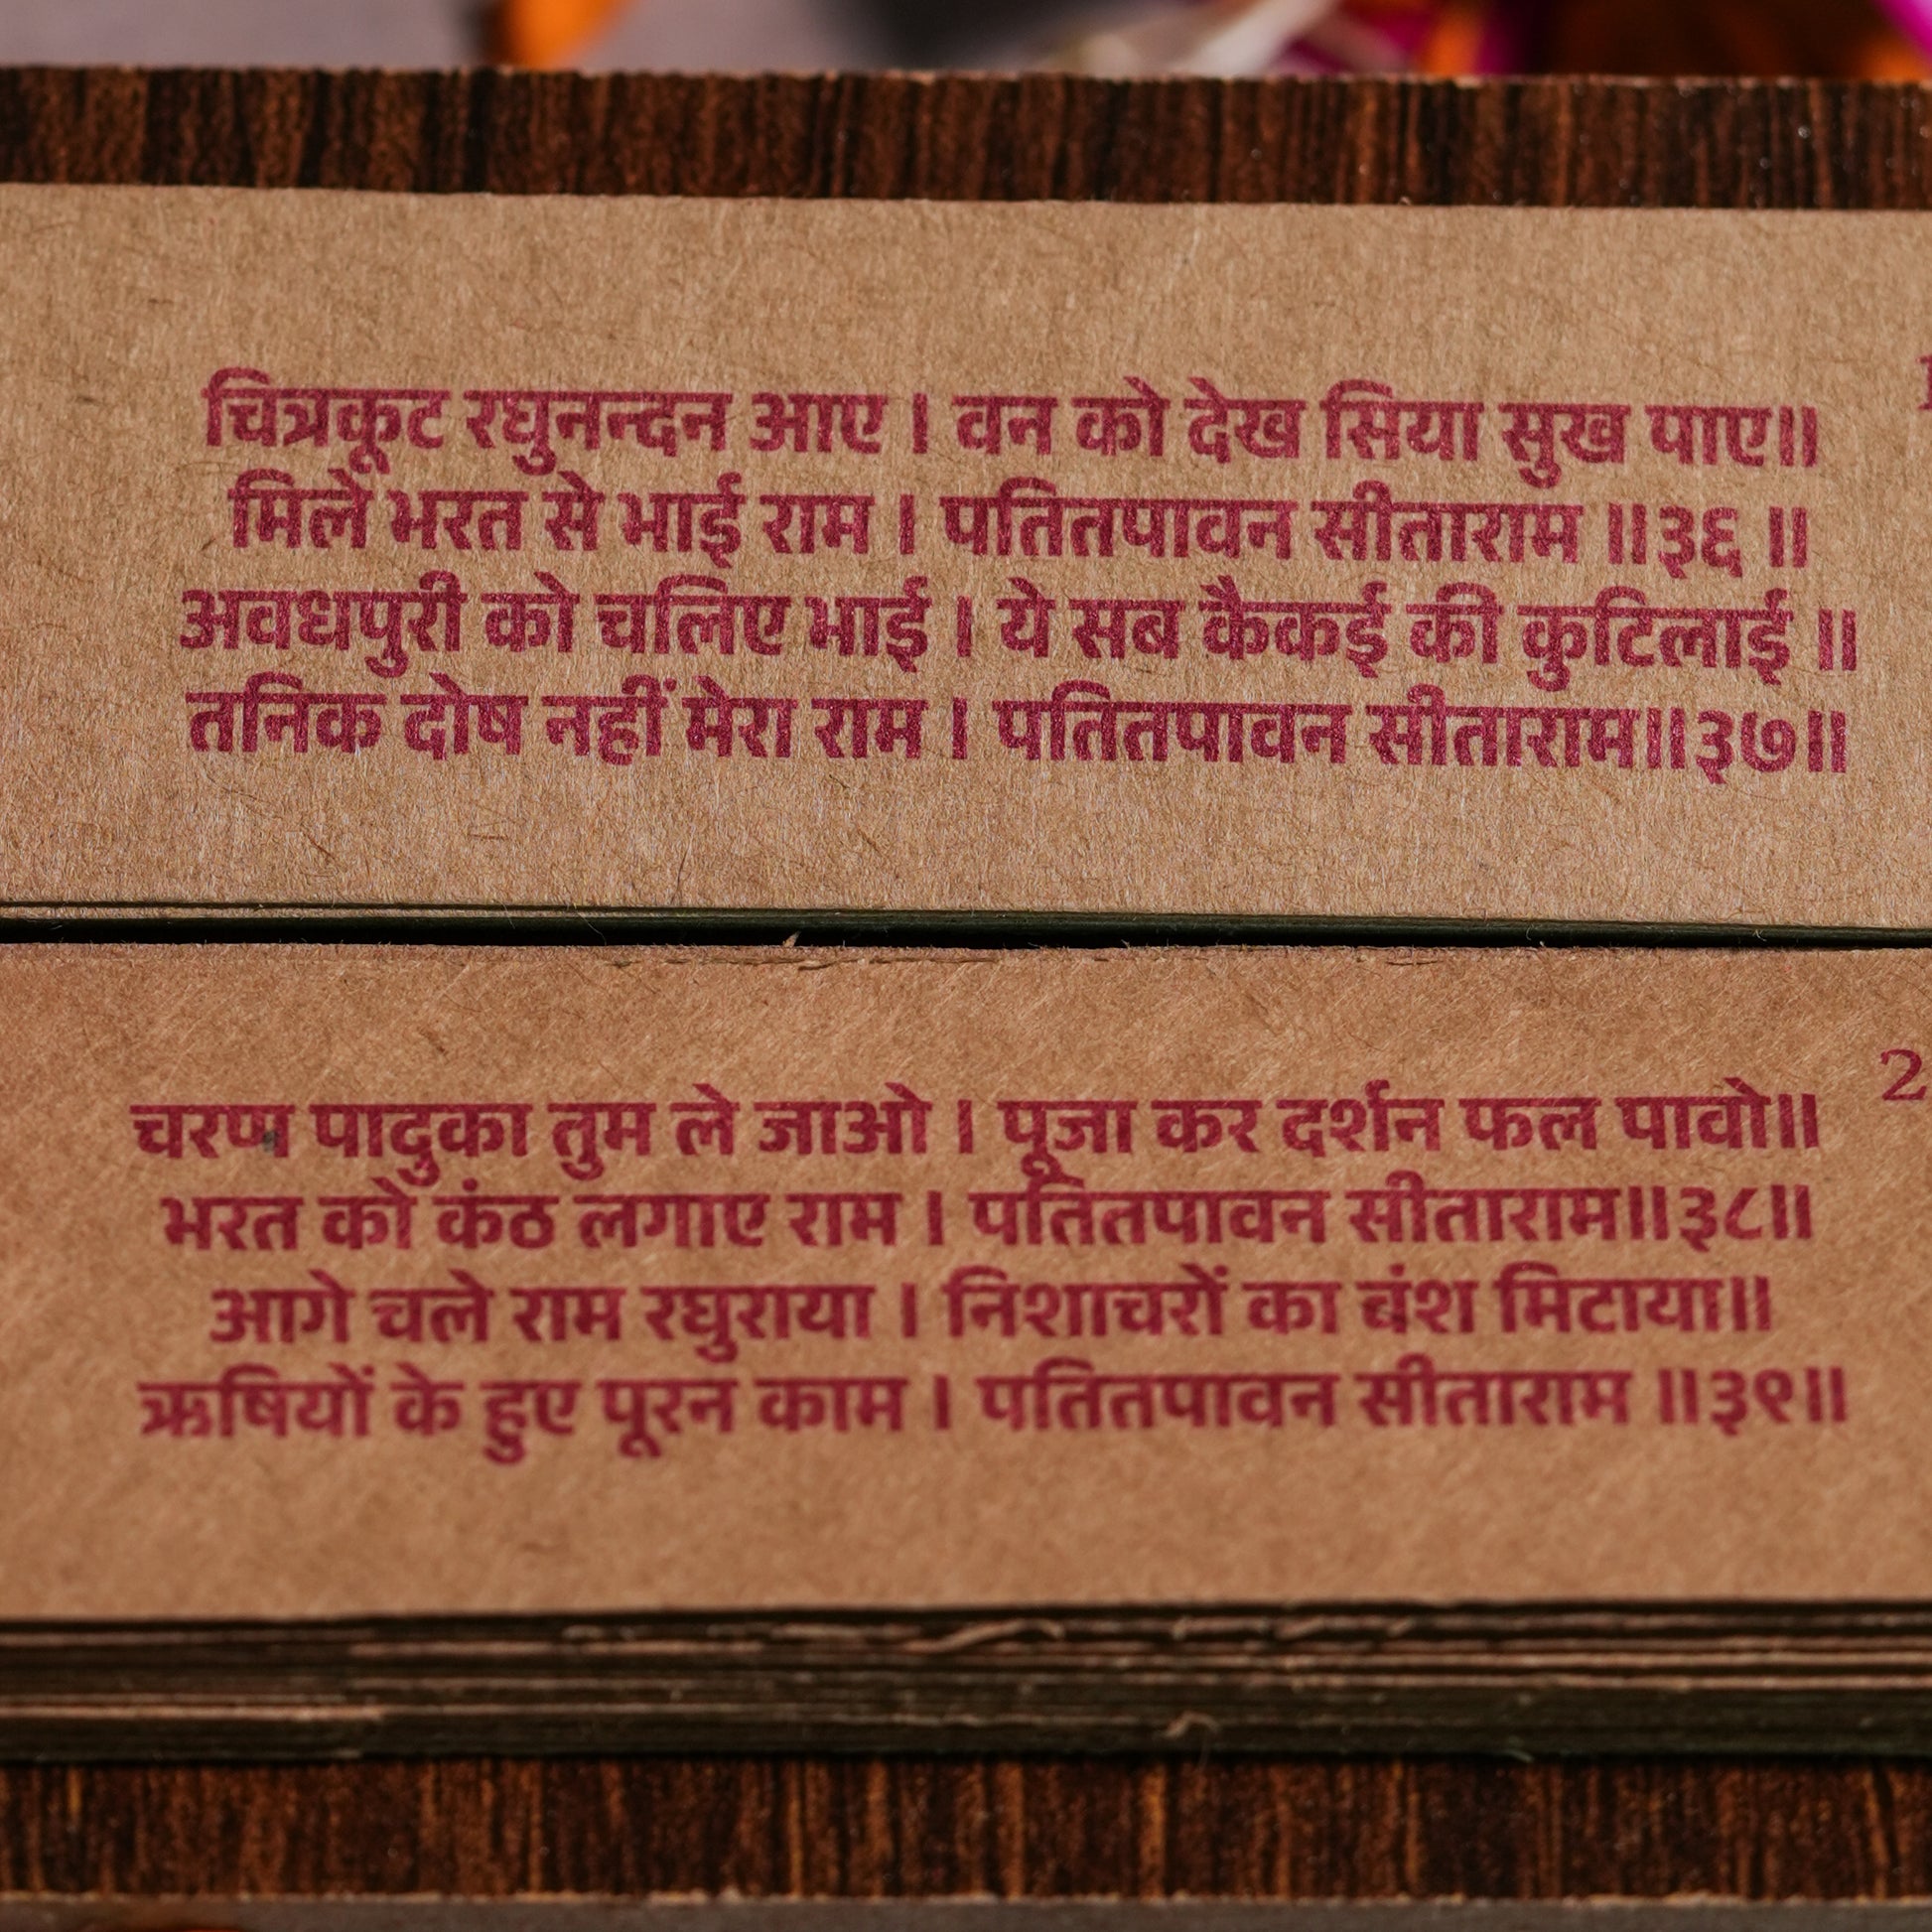 चित्रकूट रघुनन्दन आए । वन को देख सिया सुख पाए॥
मिले भरत से भाई राम । पतितपावन सीताराम ॥३६ ॥
अवधपुरी को चलिए भाई । ये सब कैकई की कुटिलाई ॥
तनिक दोष नहीं मेरा राम । पतितपावन सीताराम॥३७॥
2
चरण पादुका तुम ले जाओ । पूजा कर दर्शन फल पावो॥
भरत को कंठ लगाए राम । पतितपावन सीताराम॥३८॥
आगे चले राम रघुराया । निशाचरों का बंश मिटाया॥
ऋषियों के हुए पूरन काम । पतितपावन सीताराम ॥३९॥